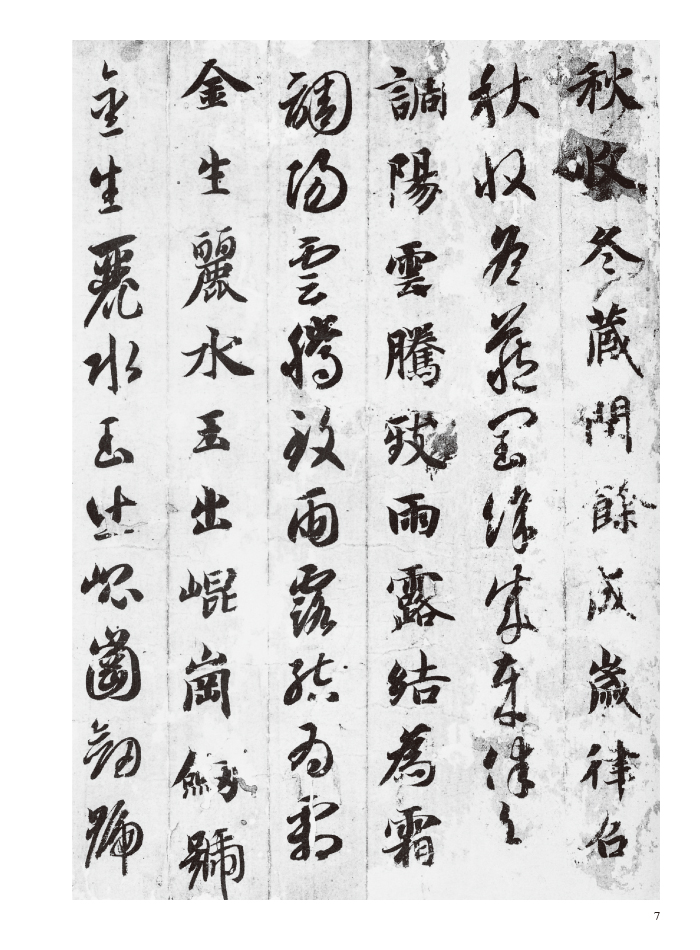 秋收冬藏閏餘成歲律召
秋收冬藏閏餘成歲律召
調陽雲騰致雨露結為霜
調陽雲騰致雨露結為霜
金生麗水玉出崐崗劔號
金生麗水玉出崐崗劔號
7